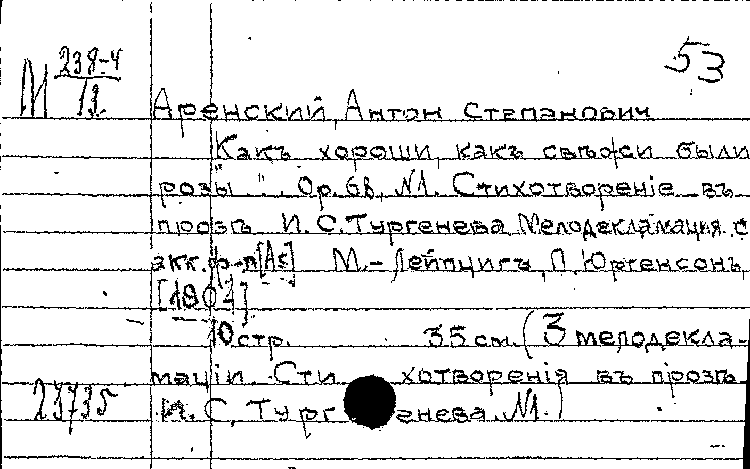 М 238-4
53
12
Аренский, Антон Степанович
"Какъ хороши, какъ свѣжи были
розы". Ор. 68, №1. Стихотвореніе въ
прозѣ И.С.Тургенева Мелодекламация с
акк. ф-п [As] М.-Лейпцигъ, П. Юргенсонъ
[1904]
10 стр. 35 см. (3 мелодекла-
маціи. Стихотворенія въ прозѣ
23735 И.С. Тургенева №1.)